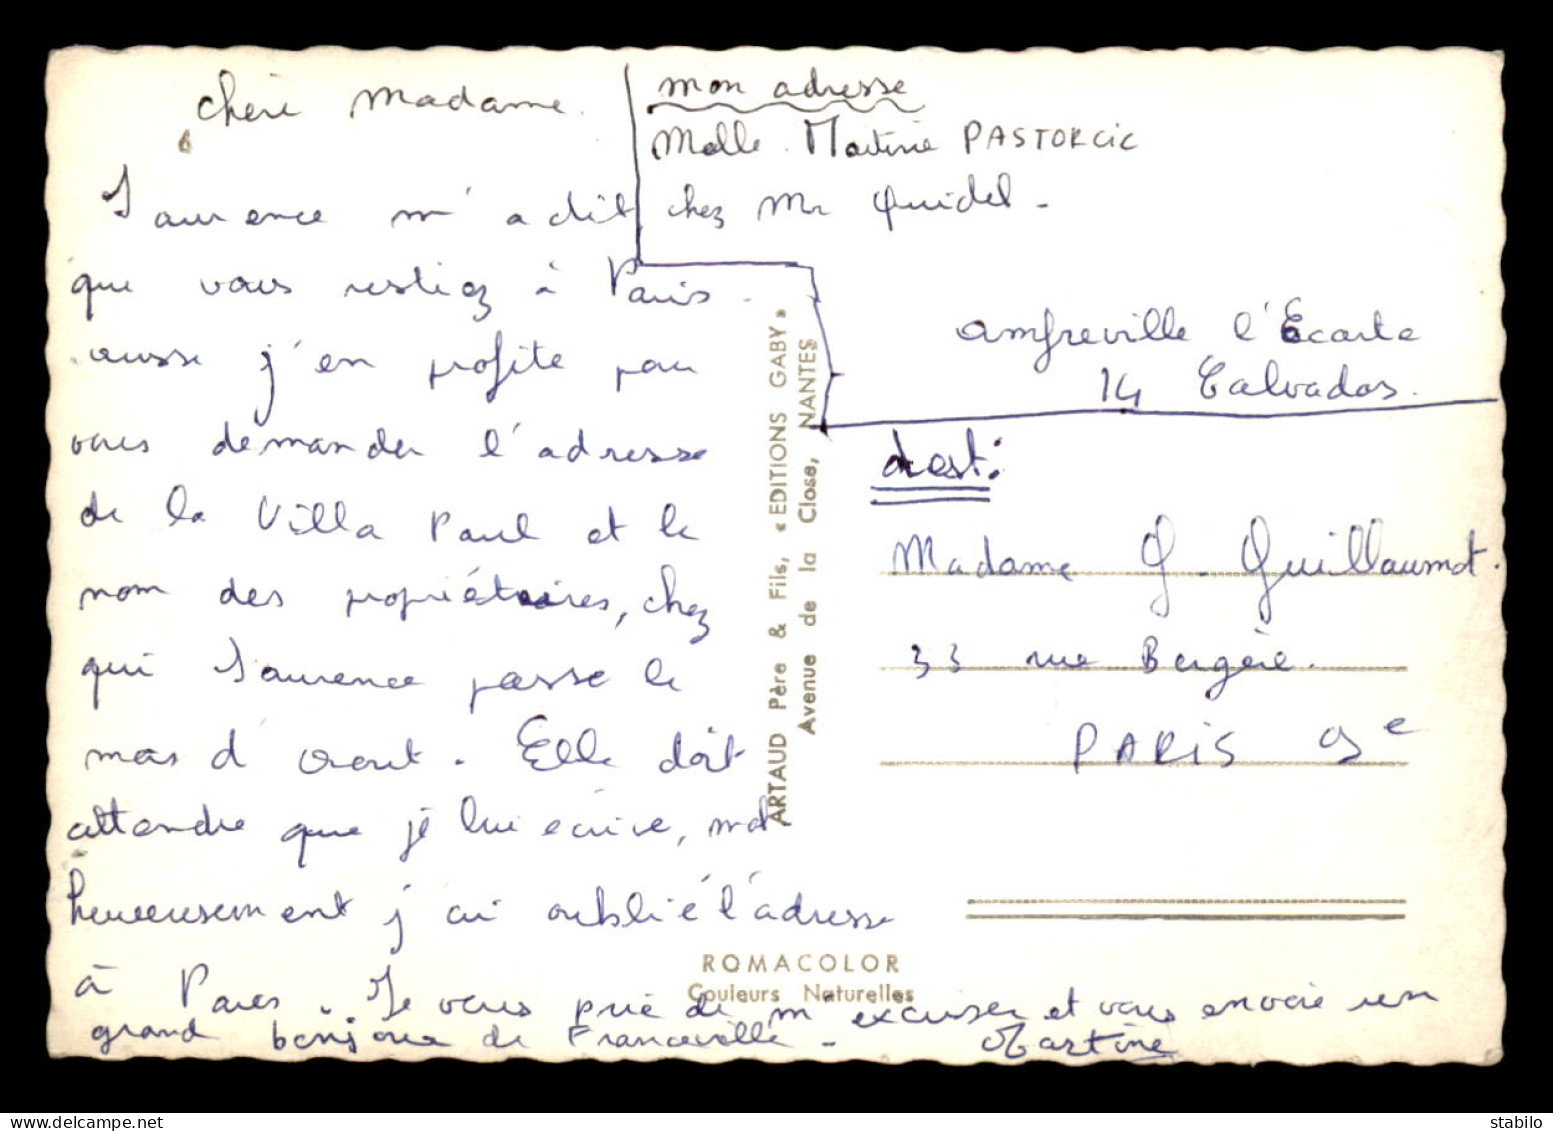 chère Madame.
Laurence m'a dit
que vous restiez à Paris.
aussi j'en profite pour
vous demander l'adresse
de la Villa Paul et le
nom des propriétaires, chez
qui Laurence passe le
mois d'aout. Elle doit
attendre que je lui écrive, mal-
heureusement j'ai oublié l'adresse
à Paris. Je vous prie de m'excuser et vous envoie un
grand bonjour de Franceville.
Martine
mon adresse
Melle. Martine PASTORCIC
chez Mr Quidel.
amfreville l'Ecarte
14 Calvados.
dest:
Madame G. Guillaumot.
33 rue Bergère.
PARIS 9e
ARTAUD Père & Fils, « EDITIONS GABY »
Avenue de la Close, NANTES
ROMACOLOR
Couleurs Naturelles
stabilo